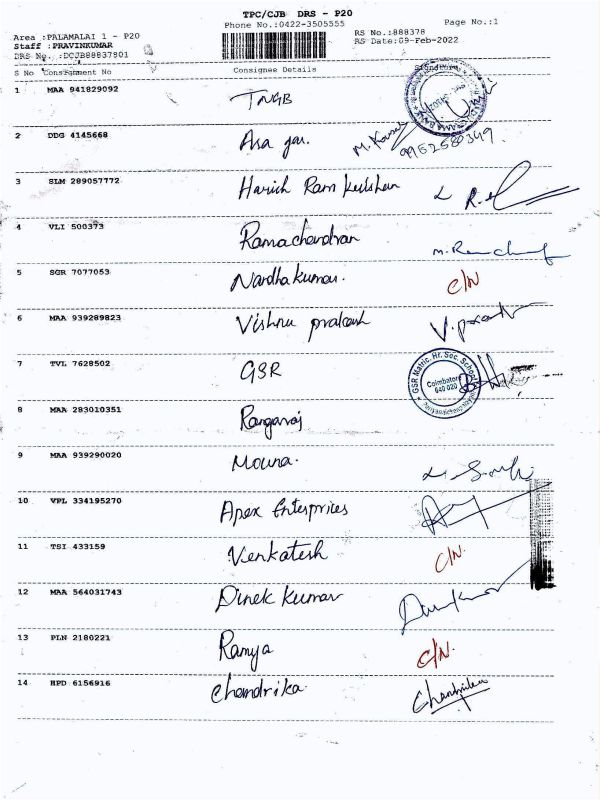 TPC/CJB DRS - P20
Phone No.:0422-3505555
Page No.:1
Area :PALAMALAI 1 - P20
RS No.:888378
Staff :PRAVINKUMAR
RS Date:09-Feb-2022
DRS No. :DCJB88837801
S No Consignment No Consignee Details
1 MAA 941829092 TNGB
2 DDG 4145668
9952580349.
3 SLM 289057772 Harish Ram
4 VLI 500373 Ramachandran
5 SGR 7077053 Nandhakumar. C/N
6 MAA 939289823 Vishnu prakash
7 TVL 7628502 GSR
GSR Matric. Hr. Sec. School
Coimbatore
640 020
8 MAA 283010351 Rangaraj
9 MAA 939290020 Mouna.
10 VPL 334195270 Apex Enterprices
11 TSI 433159 Venkatesh C/N.
12 MAA 564031743 Dinek kumar
13 PLN 2180221 Ramya C/N.
14 HPD 6156916 Chandrika.